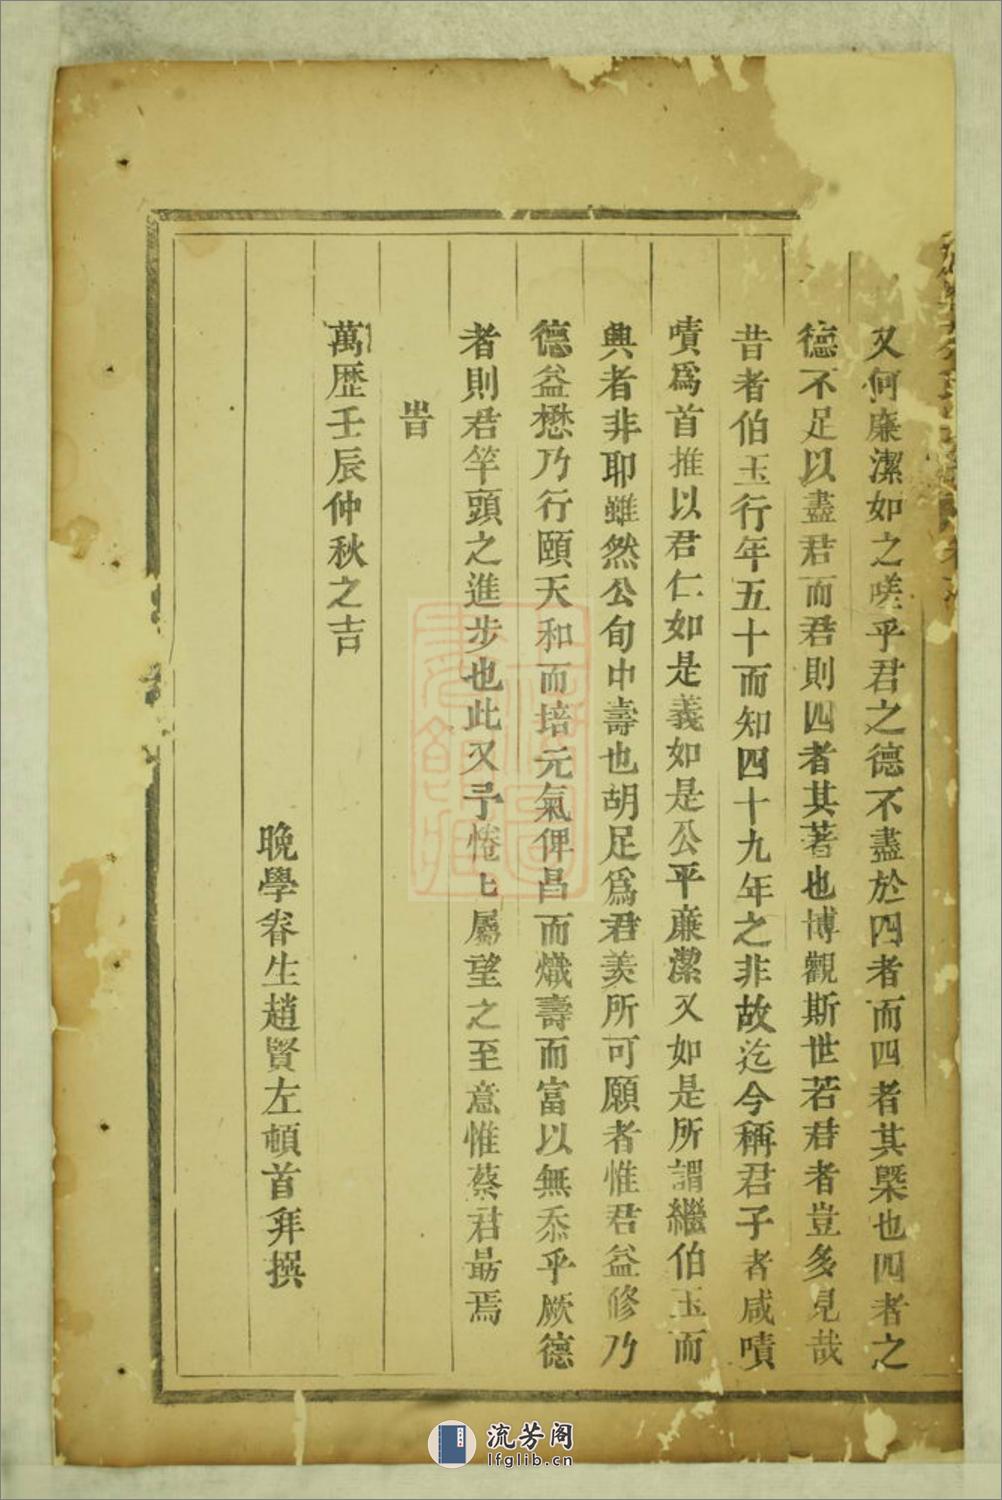 又何廉潔如之嗟乎君之德不盡於四者而四者其槩也四者之
德不足以盡君而君則四者其著也博觀斯世若君者豈多見哉
昔者伯玉行年五十而知四十九年之非故迄今稱君子者咸嘖
嘖爲首推以君仁如是義如是公平廉潔又如是所謂繼伯玉而
興者非耶雖然公旬中壽也胡足爲君羡所可願者惟君益修乃
德益懋乃行頤天和而培元氣俾昌而熾壽而富以無忝乎厥德
者則君竿頭之進步也此又予惓匕屬望之至意惟蔡君勗焉
旹
萬歴壬辰仲秋之吉
晚學眷生趙賢左頓首拜撰
流芳阁
lfglib.cn